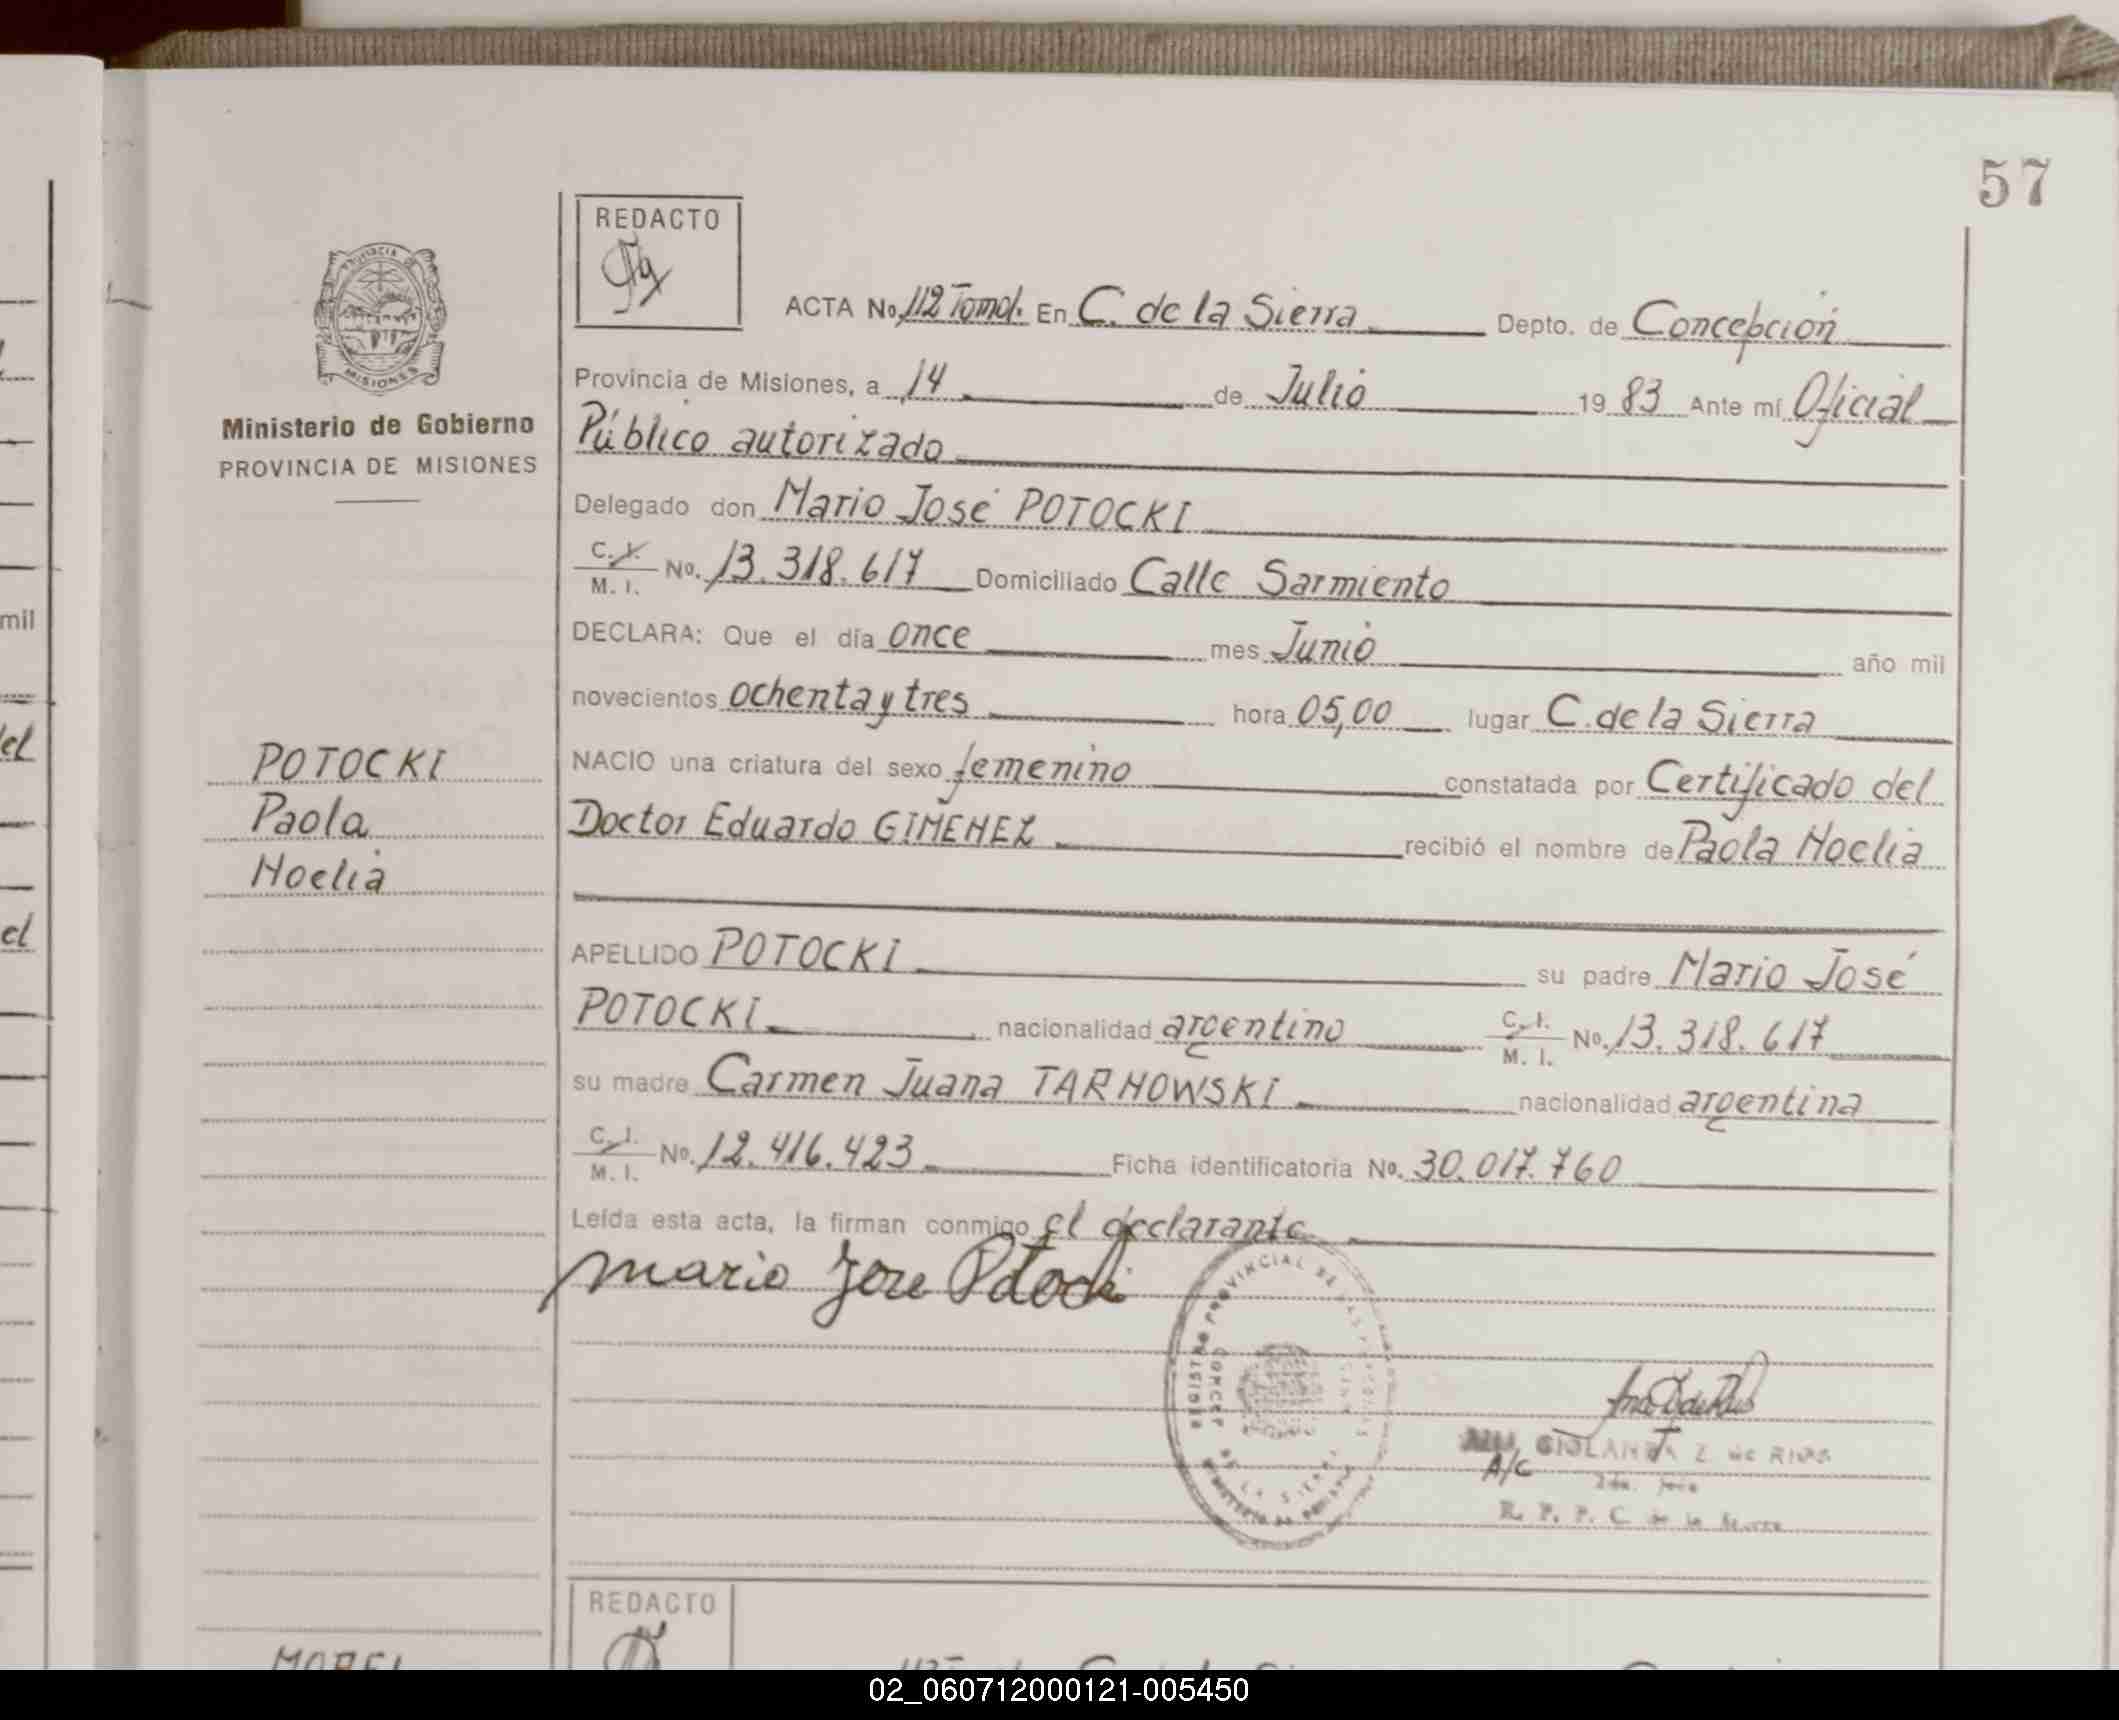 57
REDACTO
PROVINCIA DE
MISIONES
Ministerio de Gobierno
PROVINCIA DE MISIONES
ACTA No. 112 Tomo I. En C. de la Sierra Depto. de Concepción
Provincia de Misiones, a 14 de Julio 19 83 Ante mí Oficial
Público autorizado
Delegado don Mario José POTOCKI
C. I. M. I. No. 13.318.617 Domiciliado Calle Sarmiento
DECLARA: Que el día once mes Junio año mil
novecientos ochenta y tres hora 05,00 lugar C. de la Sierra
NACIO una criatura del sexo femenino constatada por Certificado del
Doctor Eduardo GIMENEZ recibió el nombre de Paola Noelia
APELLIDO POTOCKI su padre Mario José
POTOCKI nacionalidad argentino C. I. M. I. No. 13.318.617
su madre Carmen Juana TARNOWSKI nacionalidad argentina
C. I. M. I. No. 12.416.423 Ficha identificatoria No. 30.017.760
Leída esta acta, la firman conmigo el declarante
Mario Jose Potocki
POTOCKI
Paola
Noelia
REGISTRO PROVINCIAL DE LAS PERSONAS
CONCEP
DE LA SIERRA
MISIONES
A/C
Z de RIOS
R. P. P. C de la Sierra
mil
el
el
REDACTO
MOREL
02_060712000121-005450